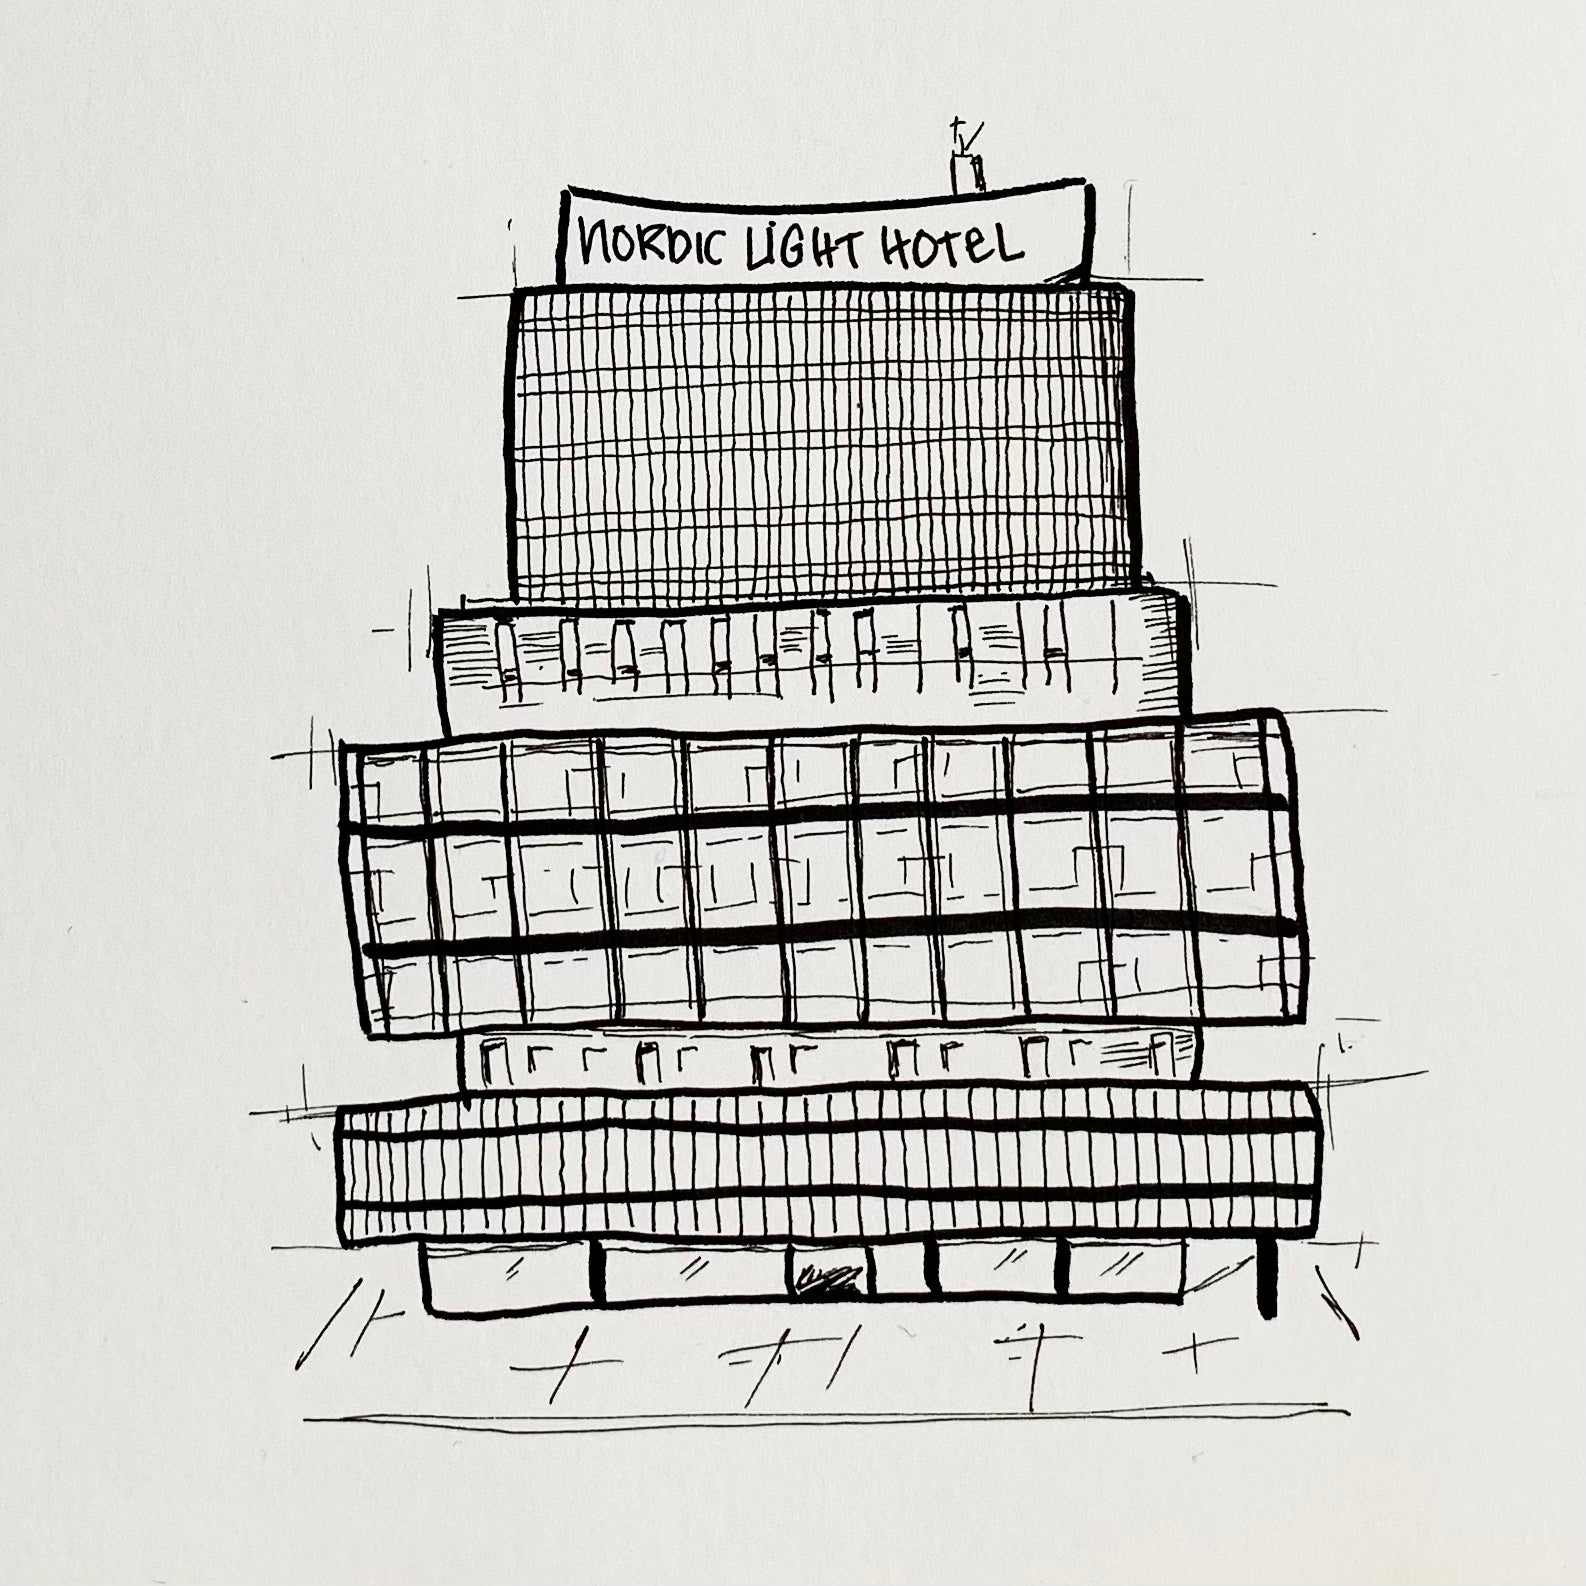 NORDIC LiGHT HOTEL